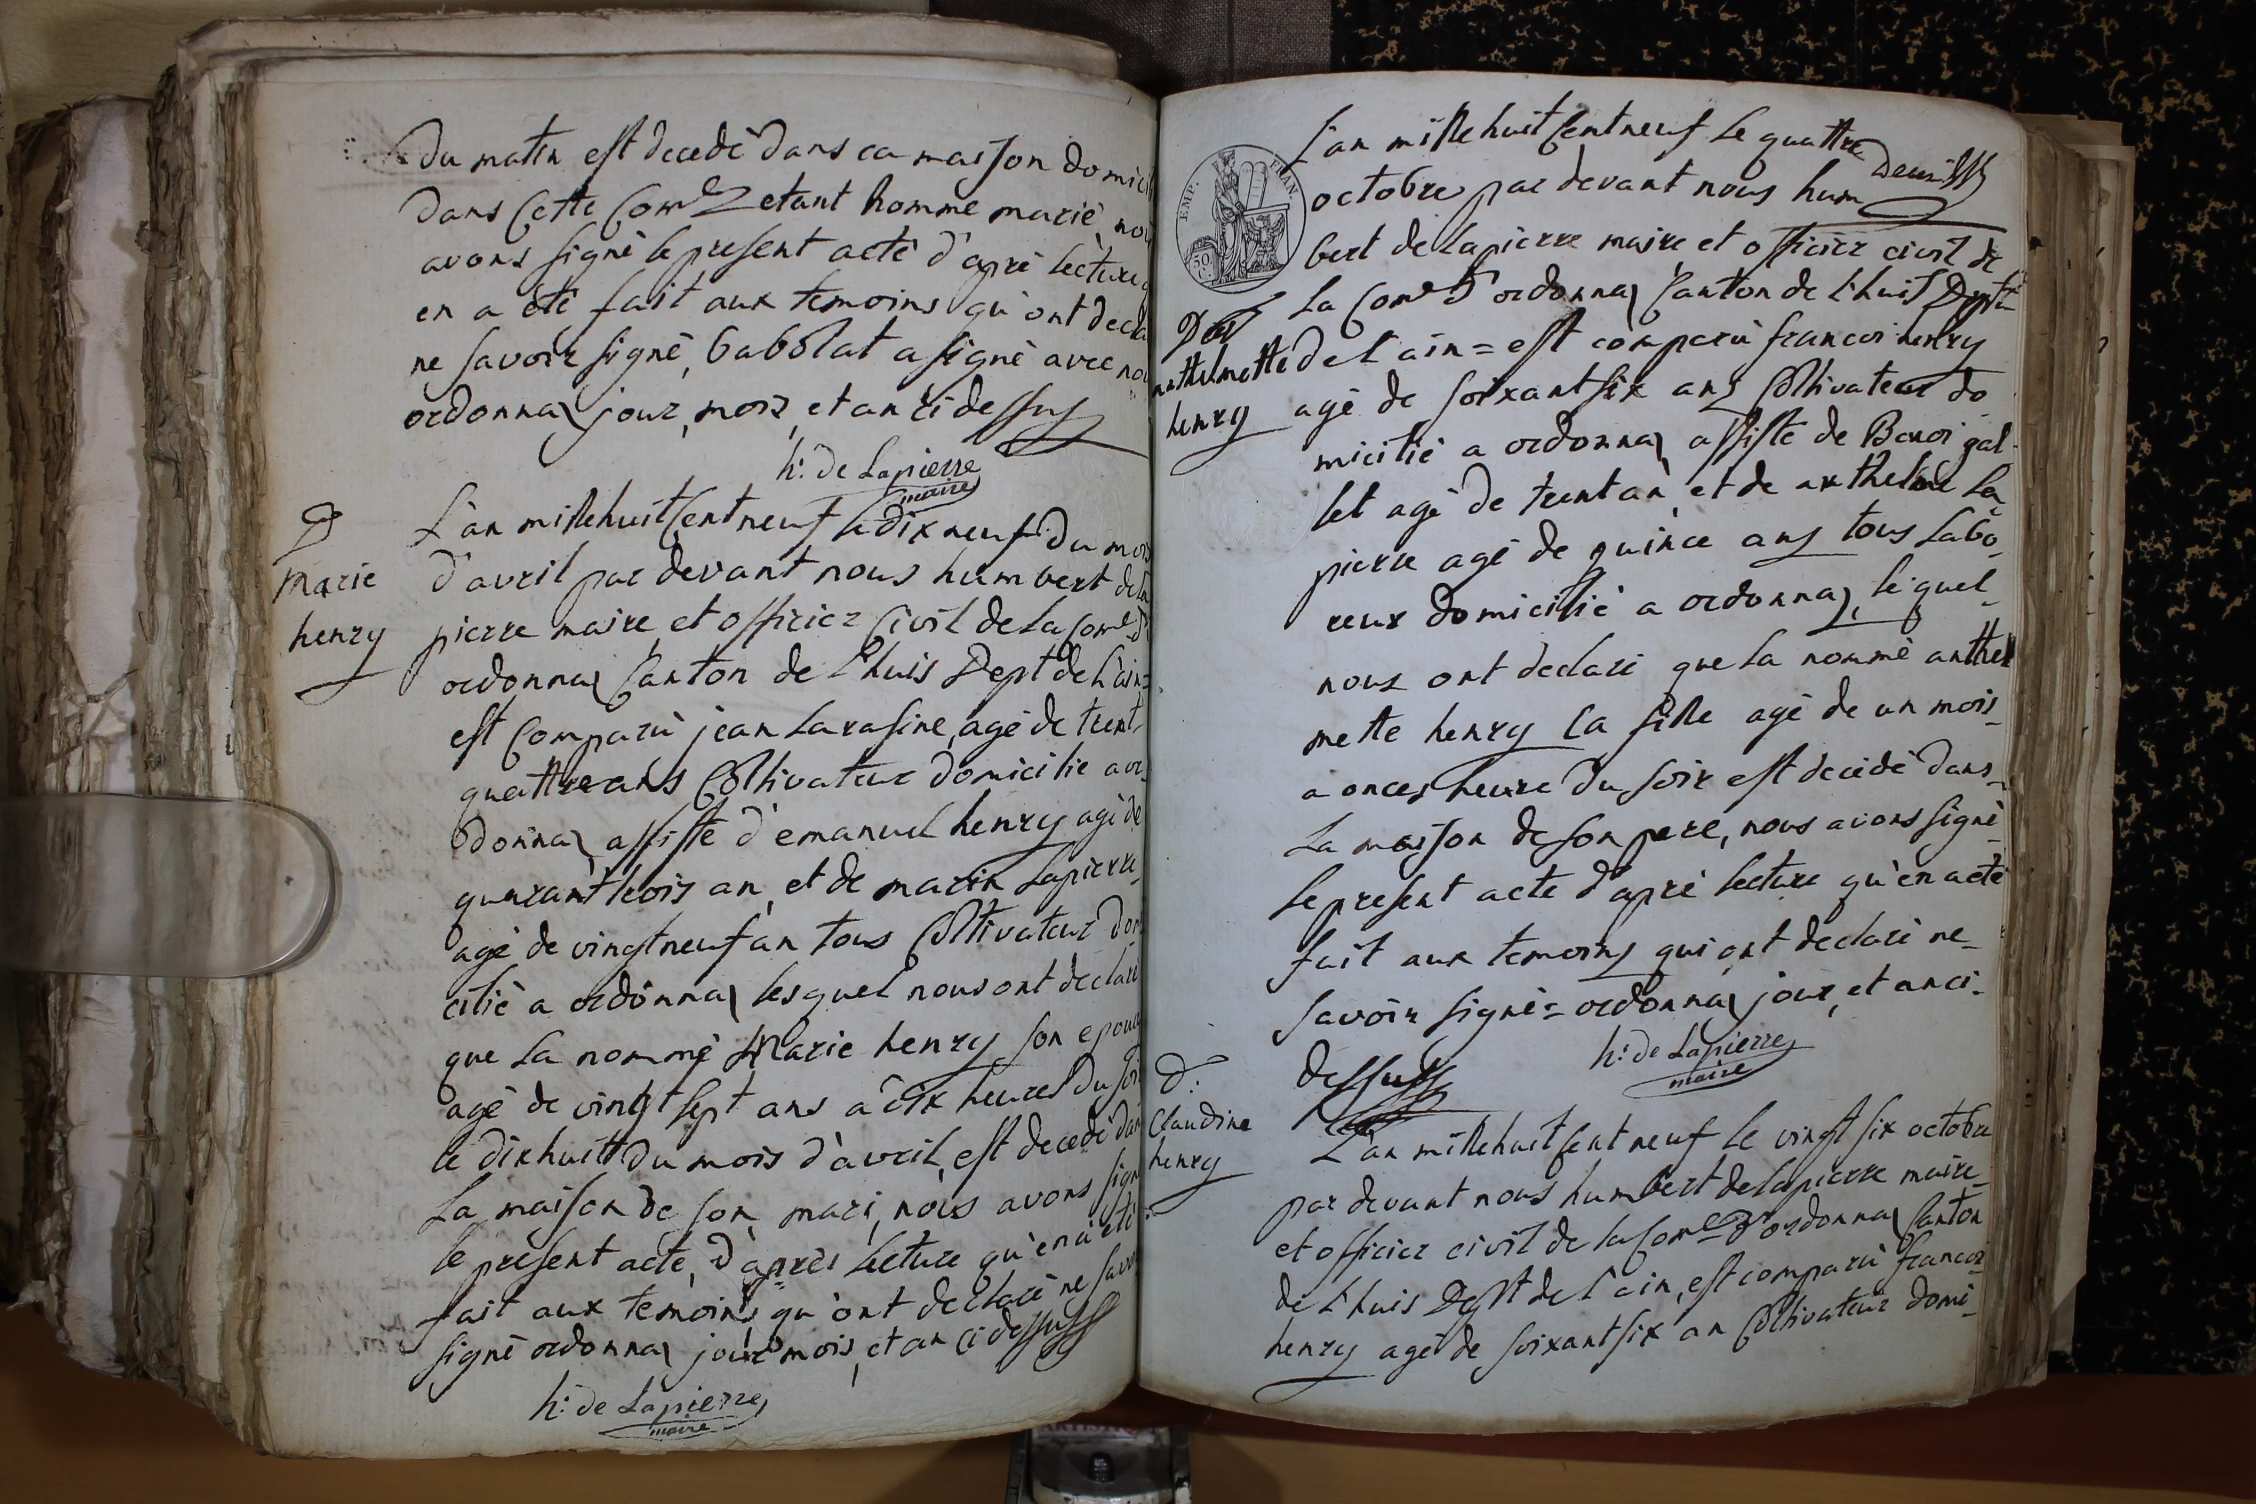 du matin est decedé dans ca maison domici
dans cette Com^e etant homme marié, nou
avons signé le present acté d'apré lecture
en a été fait aux temoins qu'ont decla
ne savoir signé, babolat a signé avec nou
ordonnaz jour, mois, et an ci dessus
h: de Lapierre
maire
D
Marie
henry
L'an mille huit cent neuf le dix neuf du mois
d'avril par devant nous humbert de la
pierre maire et officier civil de la Com^e d'
ordonnaz Canton de L'huis Dept de L'ain=
est comparu jean Larasine, agé de trent
quattre ans Coltivateur domicilié a or
donnaz, assisté d'emanuel henry agé de
quarant trois an, et de marin Lapierre
agé de vingt neuf an tous Coltivateur dom
cilié a ordonnaz lesquel nous ont declaré
que la nommé Marie henry son epouse
agé de vingt sept ans à dix heures du soir
le dix huit du mois d'avril, est decedé dan
La maison de son mari, nous avons signé
le présent acte, d'aprés lecture qu'en a été
fait aux temoins qu'ont declaré ne savoir
signé ordonnaz jour mois, et an ci dessuss
h: de Lapierre
maire
EMP. FRAN.
50 C.
L'an mille huit cent neuf le quattre
deux
octobre par devant nous hum
bert de Lapierre maire et officier civil de
La Com^e d'ordonnaz Canton de L'huis Dept
D
nathelmette
henry
de L'ain = est comparu francoi henry
agé de soixant six ans Coltivateur do
micilié a ordonnaz assisté de Benoi gal
let agé de trent an, et de anthelme La
pierre agé de quince ans tous Labo
reux domicilié a ordonnaz, lequel
nous ont declaré que la nommé anthel
mette henry La fille agé de un mois
a onces heure du soir est decédé dans
La maison de son pere, nous avons signé
le present acte d'apré lecture qu'en a eté
fait aux temoins qui ont declaré ne
savoir signé = ordonnaz jour, et an ci
dessuss
h: de Lapierre
maire
D:
Claudine
henry
L'an mille huit cent neuf le vingt six octobre
par devant nous humbert de Lapierre maire
et officier civil de la Com^e d'ordonnaz Canton
de L'huis Dept de L'ain, est comparu francoi
henry agé de soixant six an Coltivateur domi